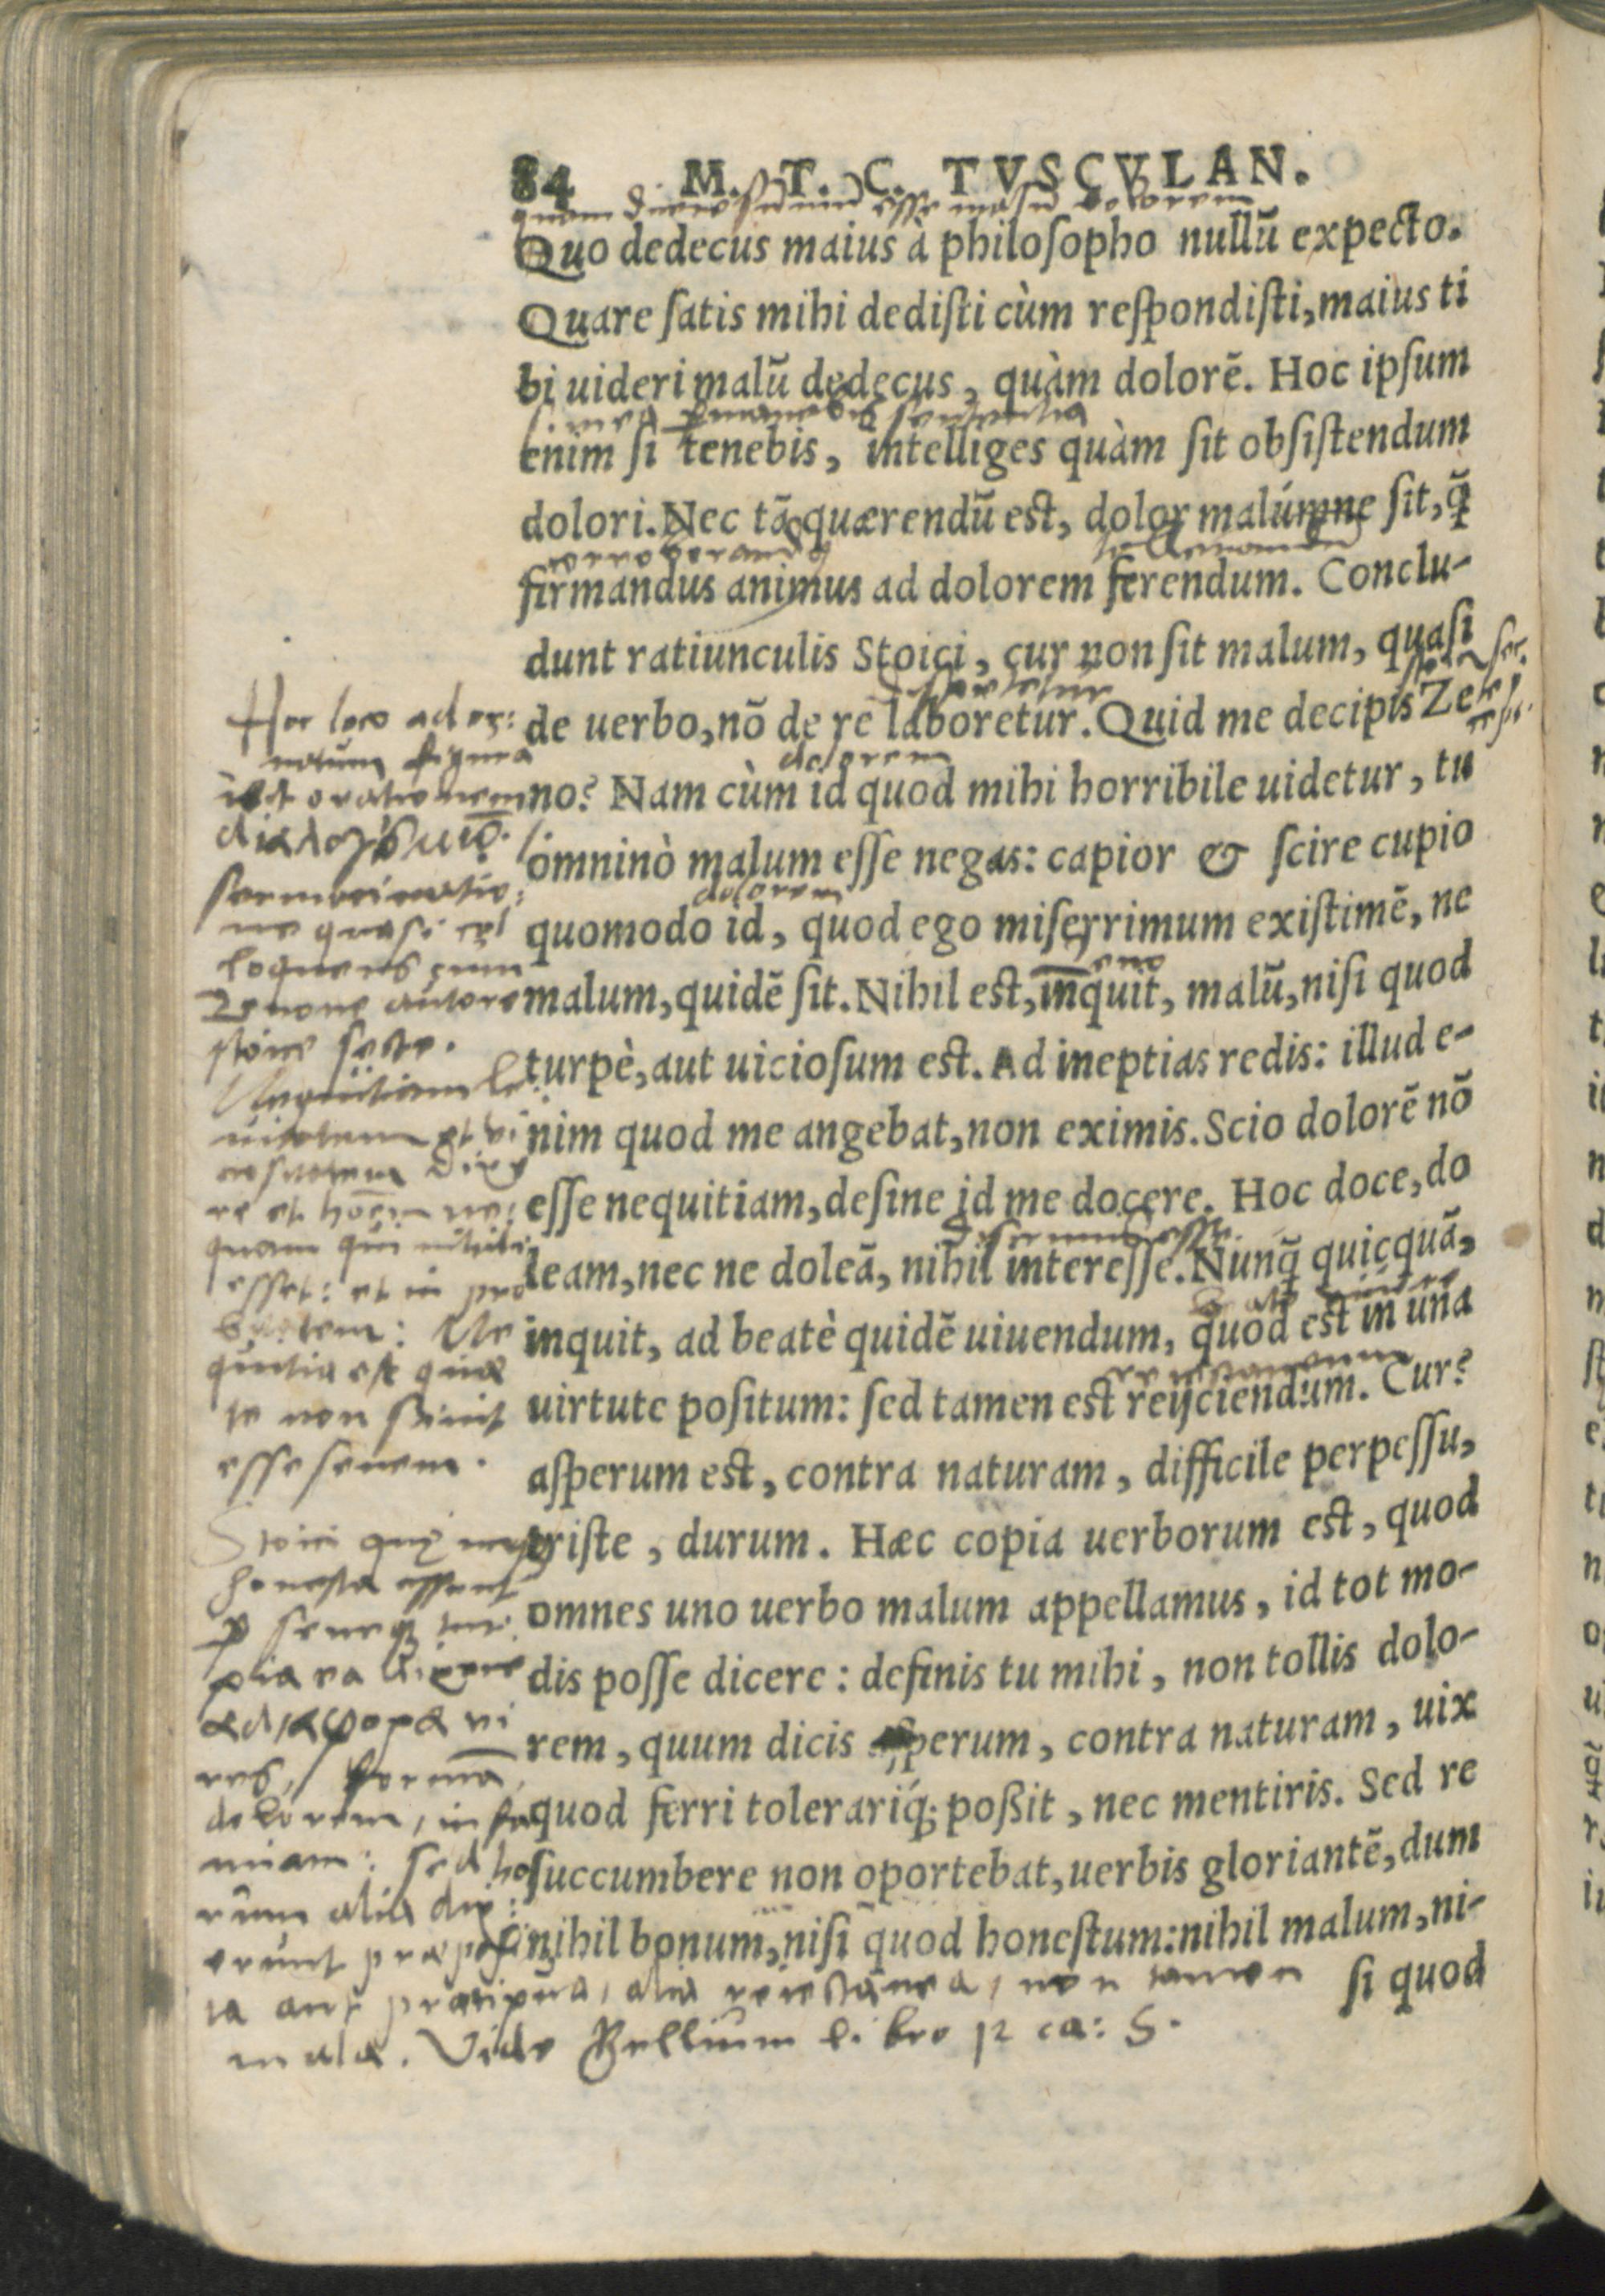 84 M. T. C. TVSCVLAN.
quam dicere summum esse malū dolorem
Quo dedecus maius à philoſopho nullū expecto.
Quare ſatis mihi dediſti cùm reſpondiſti, maius ti
bi uideri malū dedecus, quàm dolorē. Hoc ipſum
sententia
enim ſi tenebis, intelliges quàm ſit obſiſtendum
dolori. Nec tā quærendū est, dolor malúmne ſit, q̃
corroborandus
firmandus animus ad dolorem ferendum. Conclu-
dunt ratiunculis Stoici, cur non ſit malum, quaſi
de uerbo, nō de re laboretur. Quid me decipis Ze
dolorem
no? Nam cùm id quod mihi horribile uidetur, tu
omninò malum eſſe negas: capior & ſcire cupio
dolorem
quomodo id, quod ego miſerrimum exiſtimē, ne
malum, quidē ſit. Nihil est, inquit, malū, niſi quod
turpè, aut uicioſum est. Ad ineptias redis: illud e-
nim quod me angebat, non eximis. Scio dolorē nō
eſſe nequitiam, deſine id me docere. Hoc doce, do
leam, nec ne doleā, nihil intereſſe. Nunq̃ quicquā,
inquit, ad beatè quidē uiuendum, quod est in una
uirtute poſitum: ſed tamen est reijciendum. Cur?
aſperum est, contra naturam, difficile perpeſſu,
triſte, durum. Hæc copia uerborum est, quod
omnes uno uerbo malum appellamus, id tot mo-
dis poſſe dicere: definis tu mihi, non tollis dolo-
rem, quum dicis aſperum, contra naturam, uix
quod ferri tolerariq́; poßit, nec mentiris. Sed re
ſuccumbere non oportebat, uerbis gloriantē, dum
nihil bonum, niſi quod honeſtum: nihil malum, ni-
ſi quod
Hoc loco ador:
natum figura
orationem
sermocinatio:
ne quasi
loquens cum
Zenone autore
stoice secte.
esset: et in pro
bitatem: Ne
quitia est quae
te non sinit
esse senem.
Stoici
honesta essent
adiaφορα
dolorem, infa
miam: sed ho
rum alia dix:
erunt praeposi
ta aut praecipua, alia reiectanea, non tamen
mala. Vide Gellium libro 12 ca: 5.